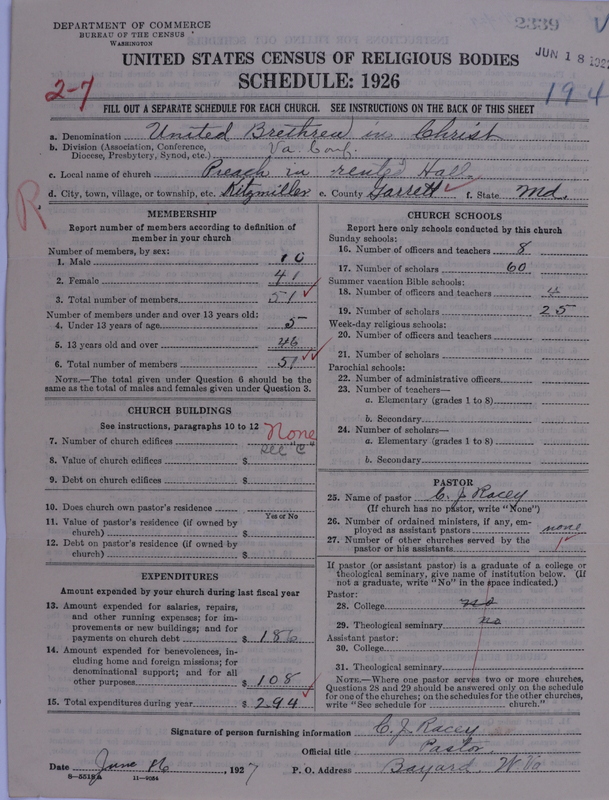 DEPARTMENT OF COMMERCE
BUREAU OF THE CENSUS
WASHINGTON
2339
V
JUN 18
UNITED STATES CENSUS OF RELIGIOUS BODIES
SCHEDULE: 1926
2-7
194
FILL OUT A SEPARATE SCHEDULE FOR EACH CHURCH. SEE INSTRUCTIONS ON THE BACK OF THIS SHEET
a. Denomination United Brethren in Christ
b. Division (Association, Conference, Diocese, Presbytery, Synod, etc.) Va. Conf.
c. Local name of church Preach in rented Hall
d. City, town, village, or township, etc. Kitzmiller e. County Garrett f. State Md.
R
MEMBERSHIP
Report number of members according to definition of
member in your church
Number of members, by sex:
1. Male 10
2. Female 41
3. Total number of members 51
Number of members under and over 13 years old:
4. Under 13 years of age 5
5. 13 years old and over 46
6. Total number of members 51
NOTE.—The total given under Question 6 should be the
same as the total of males and females given under Question 3.
CHURCH BUILDINGS
See instructions, paragraphs 10 to 12
None
7. Number of church edifices Rec "C"
8. Value of church edifices $
9. Debt on church edifices $
10. Does church own pastor's residence
Yes or No
11. Value of pastor's residence (if owned by
church) $
12. Debt on pastor's residence (if owned by
church) $
EXPENDITURES
Amount expended by your church during last fiscal year
13. Amount expended for salaries, repairs,
and other running expenses; for im-
provements or new buildings; and for
payments on church debt $ 186
14. Amount expended for benevolences, in-
cluding home and foreign missions; for
denominational support; and for all
other purposes $ 108
15. Total expenditures during year $ 294
CHURCH SCHOOLS
Report here only schools conducted by this church
Sunday schools:
16. Number of officers and teachers 8
17. Number of scholars 60
Summer vacation Bible schools:
18. Number of officers and teachers 4
19. Number of scholars 25
Week-day religious schools:
20. Number of officers and teachers
21. Number of scholars
Parochial schools:
22. Number of administrative officers
23. Number of teachers—
a. Elementary (grades 1 to 8)
b. Secondary
24. Number of scholars—
a. Elementary (grades 1 to 8)
b. Secondary
PASTOR
25. Name of pastor C. J. Racey
(If church has no pastor, write "None")
26. Number of ordained ministers, if any, em-
ployed as assistant pastors none
27. Number of other churches served by the
pastor or his assistants 1
If pastor (or assistant pastor) is a graduate of a college or
theological seminary, give name of institution below. (If
not a graduate, write "No" in the space indicated.)
Pastor:
28. College no
29. Theological seminary no
Assistant pastor:
30. College
31. Theological seminary
NOTE.—Where one pastor serves two or more churches,
Questions 28 and 29 should be answered only on the schedule
for one of the churches; on the schedules for the other churches,
write "See schedule for church."
Signature of person furnishing information C. J. Racey
Official title Pastor
Date June 16, 1927 P. O. Address Bayard, W Va
8—5518a 11—9054